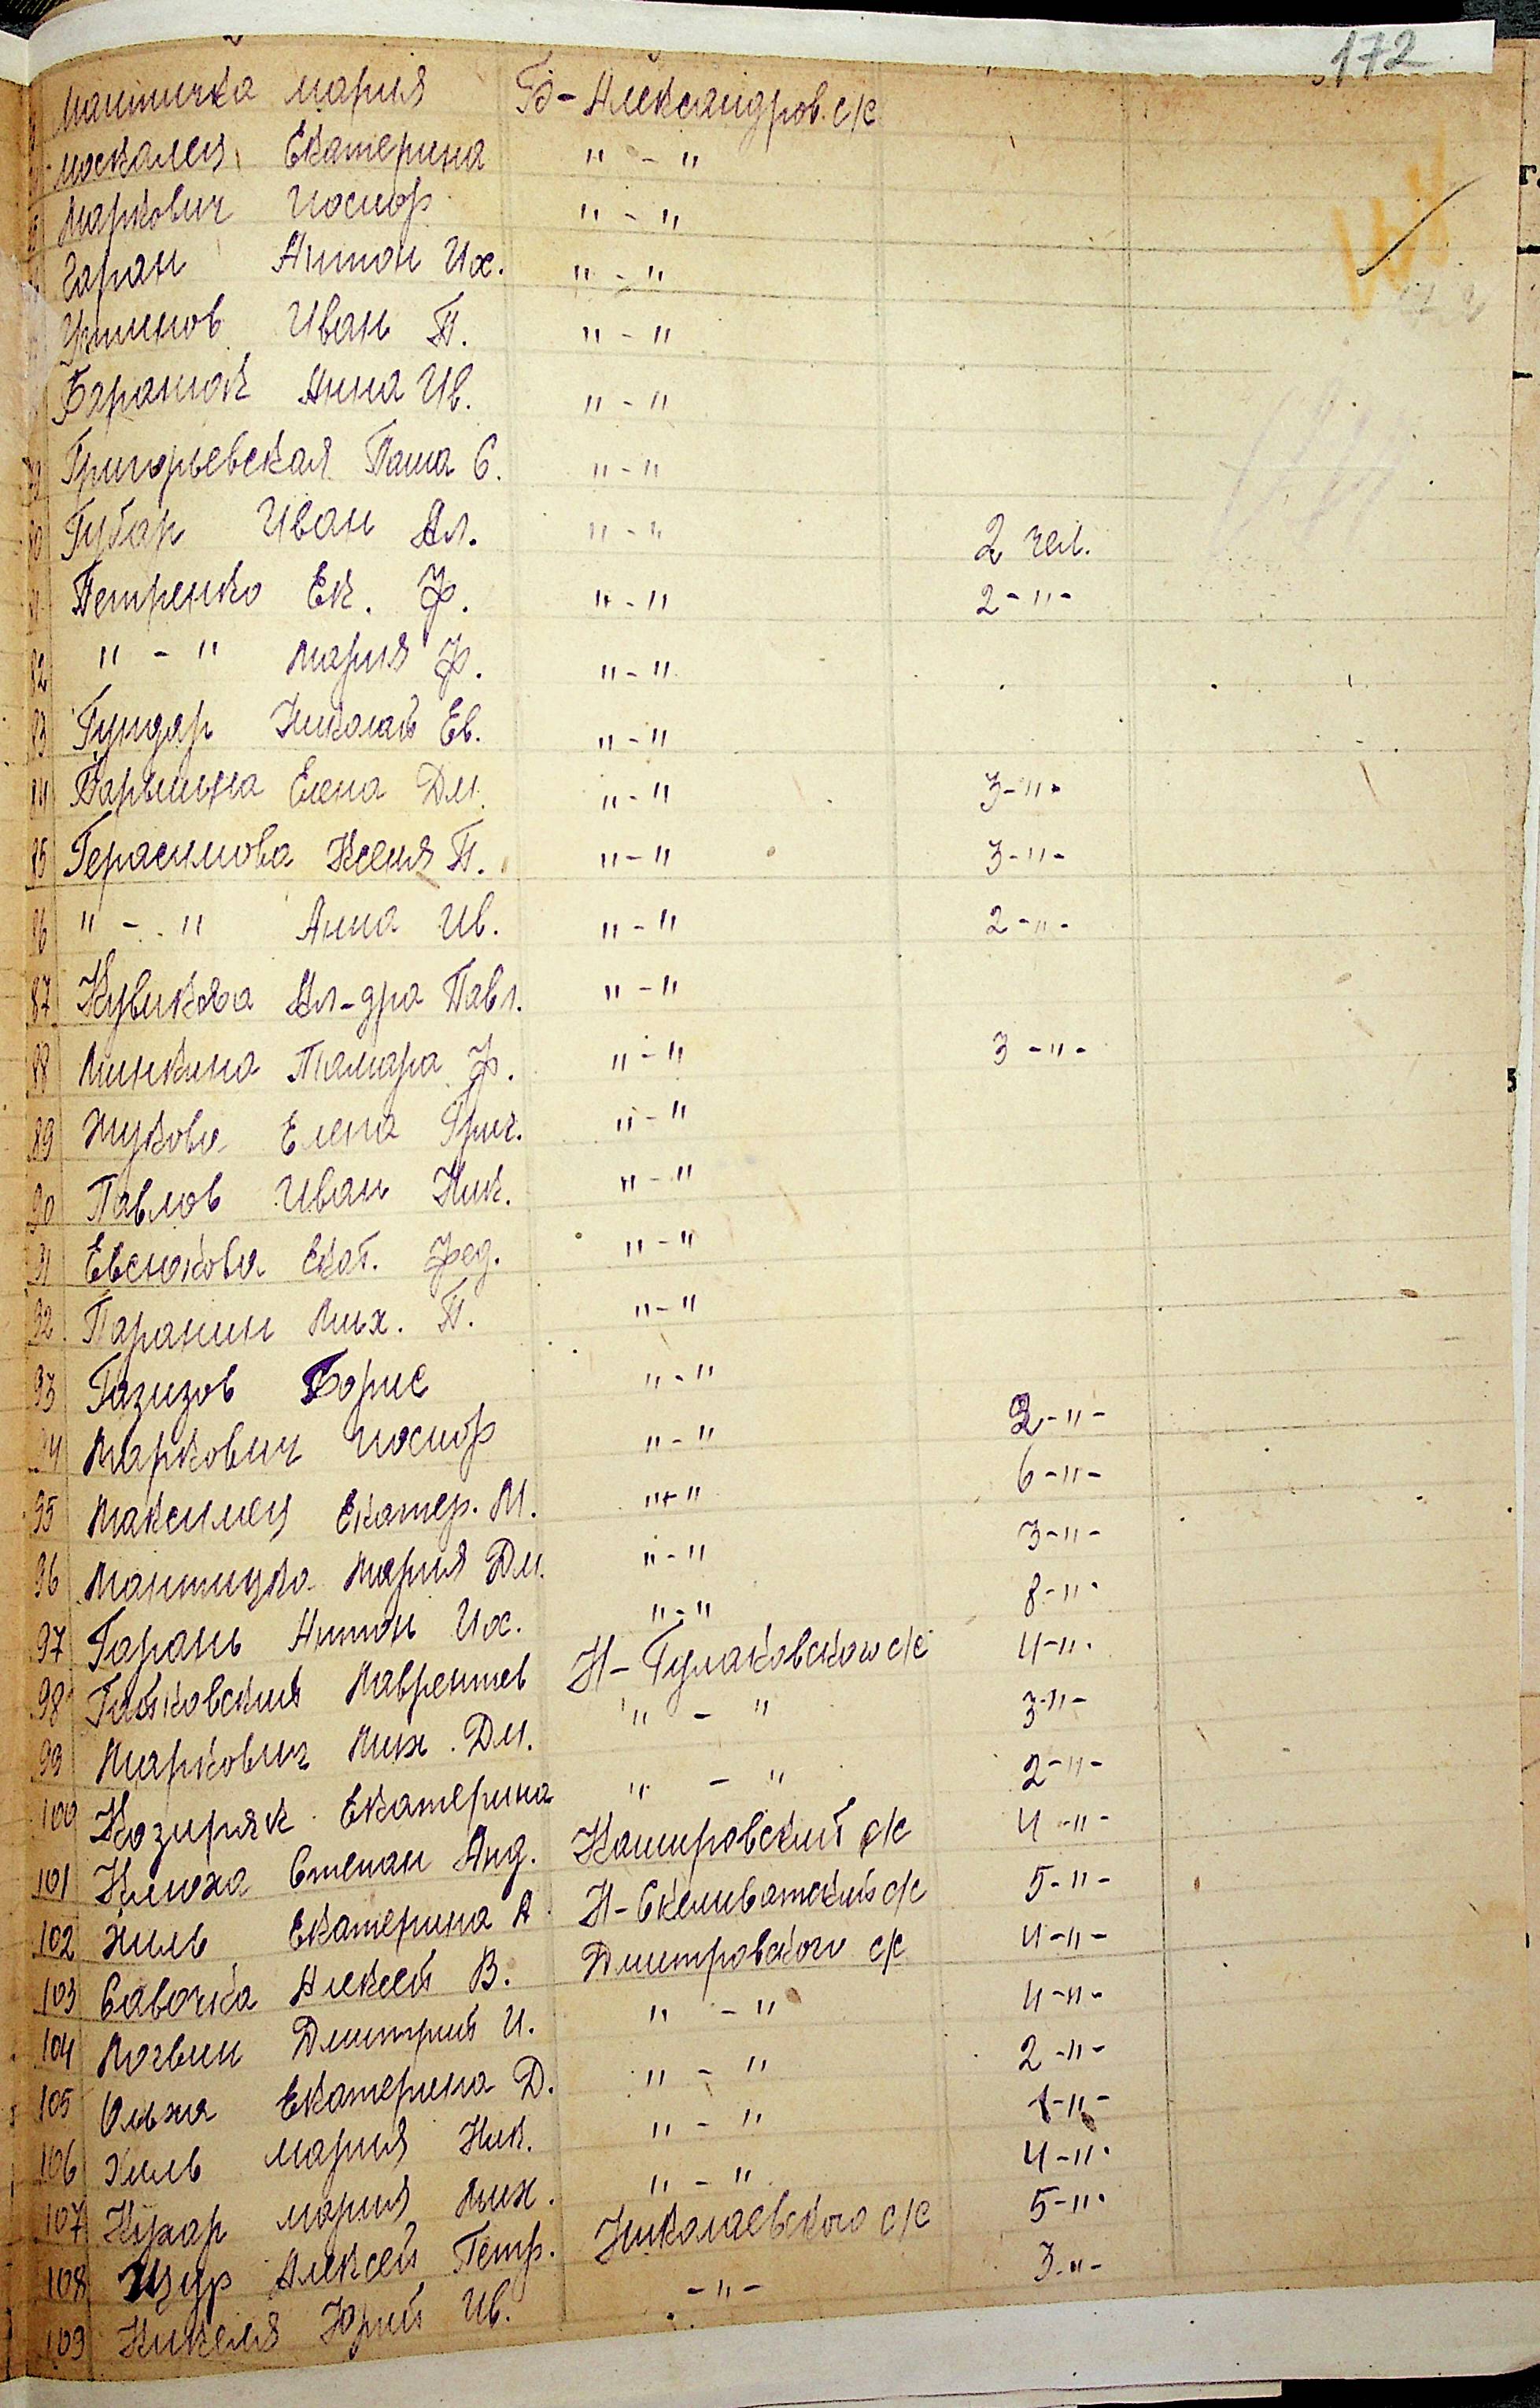 172
Мантичка Мария Б-Александров. с/с
Москалец Екатерина " - "
Маркович Иосиф " - "
Гаран Антон Их. " - "
Устинов Иван П. " - "
Баранюк Анна Ив. " - "
Григорьевская Паша С. " - "
80 Губар Иван Ал. " - " 2 чел.
81 Петренко Ек. Ф. " - " 2 - " -
82 " - " Мария Ф. " - "
83 Гундар Николай Ев. " - "
84 Парышна Елена Дм. " - " 3 - " -
85 Герасимова Ксения П. " - " 3 - " -
86 " - " Анна Ив. " - " 2 - " -
87 Кувикова Ал-дра Павл. " - "
88 Минкина Тамара Ф. " - " 3 - " -
89 Жукова Елена Григ. " - "
90 Павлов Иван Ник. " - "
91 Евсюкова Екат. Фед. " - "
92 Паранин Мих. П. " - "
93 Газизов Борис " - "
94 Маркович Иосиф " - " 2 - " -
95 Максимец Екатер. М. " - " 6 - " -
96 Мантицка Мария Дм. " - " 3 - " -
97 Гарань Антон Их. " - " 8 - " -
98 Гатковский Лаврентев Н-Гулаковского с/с 4 - " -
99 Маркович Мих. Дм. " - " 3 - " -
100 Козиряк Екатерина " - " 2 - " -
101 Клюха Степан Анд. Кашировский с/с 4 - " -
102 Хиль Екатерина А Н-Скеливатский с/с 5 - " -
103 Савочка Алексей В. Дмитровского с/с 4 - " -
104 Логвин Дмитрий И. " - " 4 - " -
105 Ольха Екатерина Д. " - " 2 - " -
106 Хиль Мария Ник. " - " 1 - " -
107 Кухар Мария Мих. " - " 4 - " -
108 Щур Алексей Петр. Николаевского с/с 5 - " -
109 Кикеля Юрий Ив. - " - 3 - " -